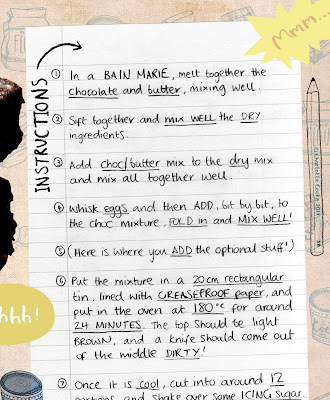 Mmm...
INSTRUCTIONS
① In a BAIN MARIE, melt together the
chocolate and butter, mixing well.
② Sift together and mix WELL the DRY
ingredients.
③ Add choc/butter mix to the dry mix
and mix all together well.
④ Whisk eggs and then ADD, bit by bit, to
the choc mixture, FOLD in and MIX WELL!
⑤ (Here is where you ADD the optional stuff!)
⑥ Put the mixture in a 20cm rectangular
tin, lined with GREASEPROOF paper, and
put in the oven at 180°C for around
24 MINUTES. The top should be light
BROWN, and a knife should come out
of the middle DIRTY!
hhh!
⑦ Once it is cool, cut into around 12
portions, and shake over some ICING sugar.